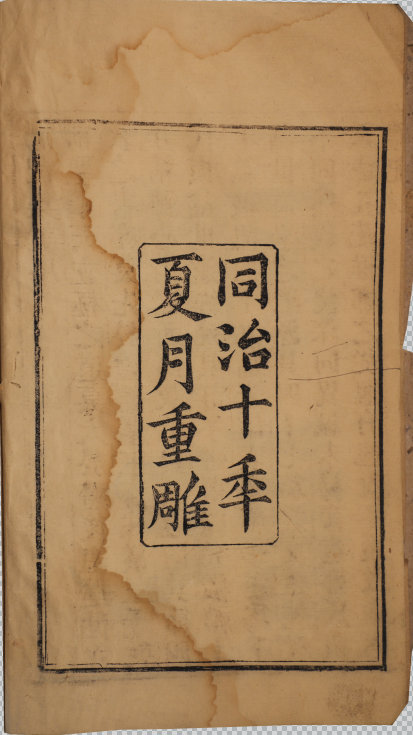 同治十年
夏月重雕